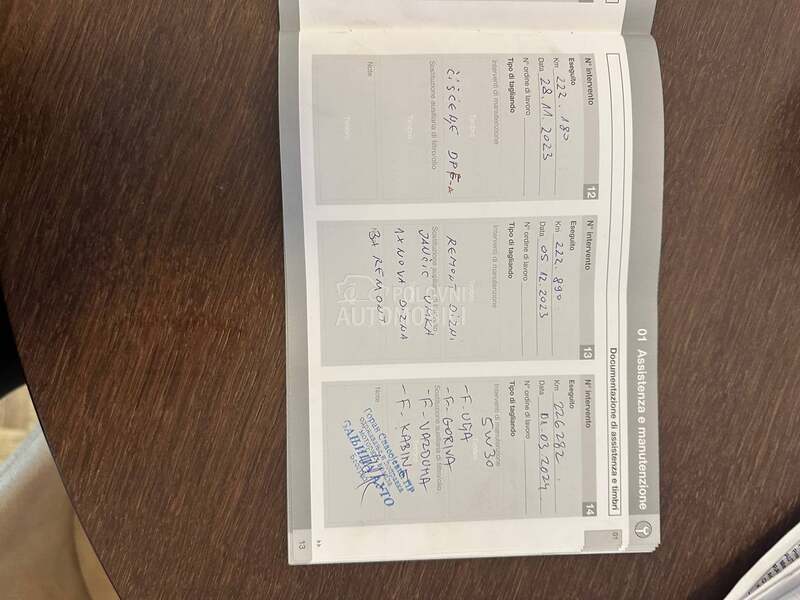 01 Assistenza e manutenzione
Documentazione di assistenza e timbri
N° intervento 12
Eseguito
Km 222.180
Data 28.11.2023
N° ordine di lavoro
Tipo di tagliando
Interventi di manutenzione
ČIŠĆENJE DPF-a
Sostituzione ausiliaria di filtro/olio
Note
N° intervento 13
Eseguito
Km 222.890
Data 05.12.2023
N° ordine di lavoro
Tipo di tagliando
Interventi di manutenzione
REMONT DIZNI
JANČIĆ UMKA
1X NOVA DIZNA
3X REMONT
POLOVNI
AUTOMOBILI
N° intervento 14
Eseguito
Km 226282
Data 01.03.2024
N° ordine di lavoro
Tipo di tagliando
Interventi di manutenzione
5W30
-F-ULJA
-F-GORIVA
Sostituzione ausiliaria di filtro/olio
-F-VAZDUHA
-F-KABINE
Note
01
13